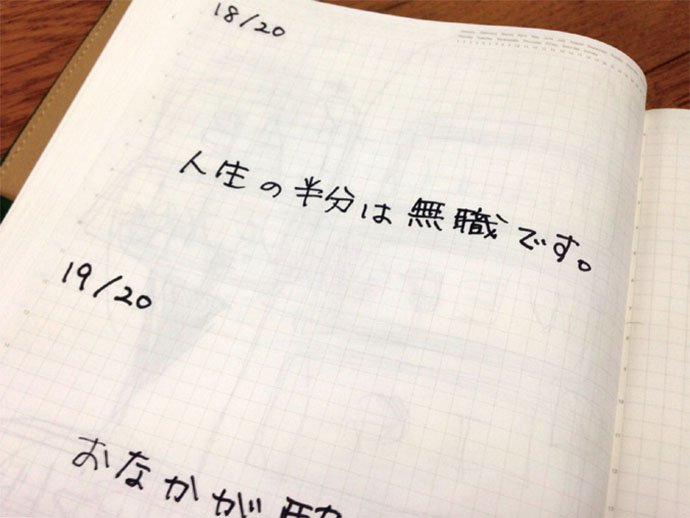 18/20
人生の半分は無職です。
19/20
おなかが